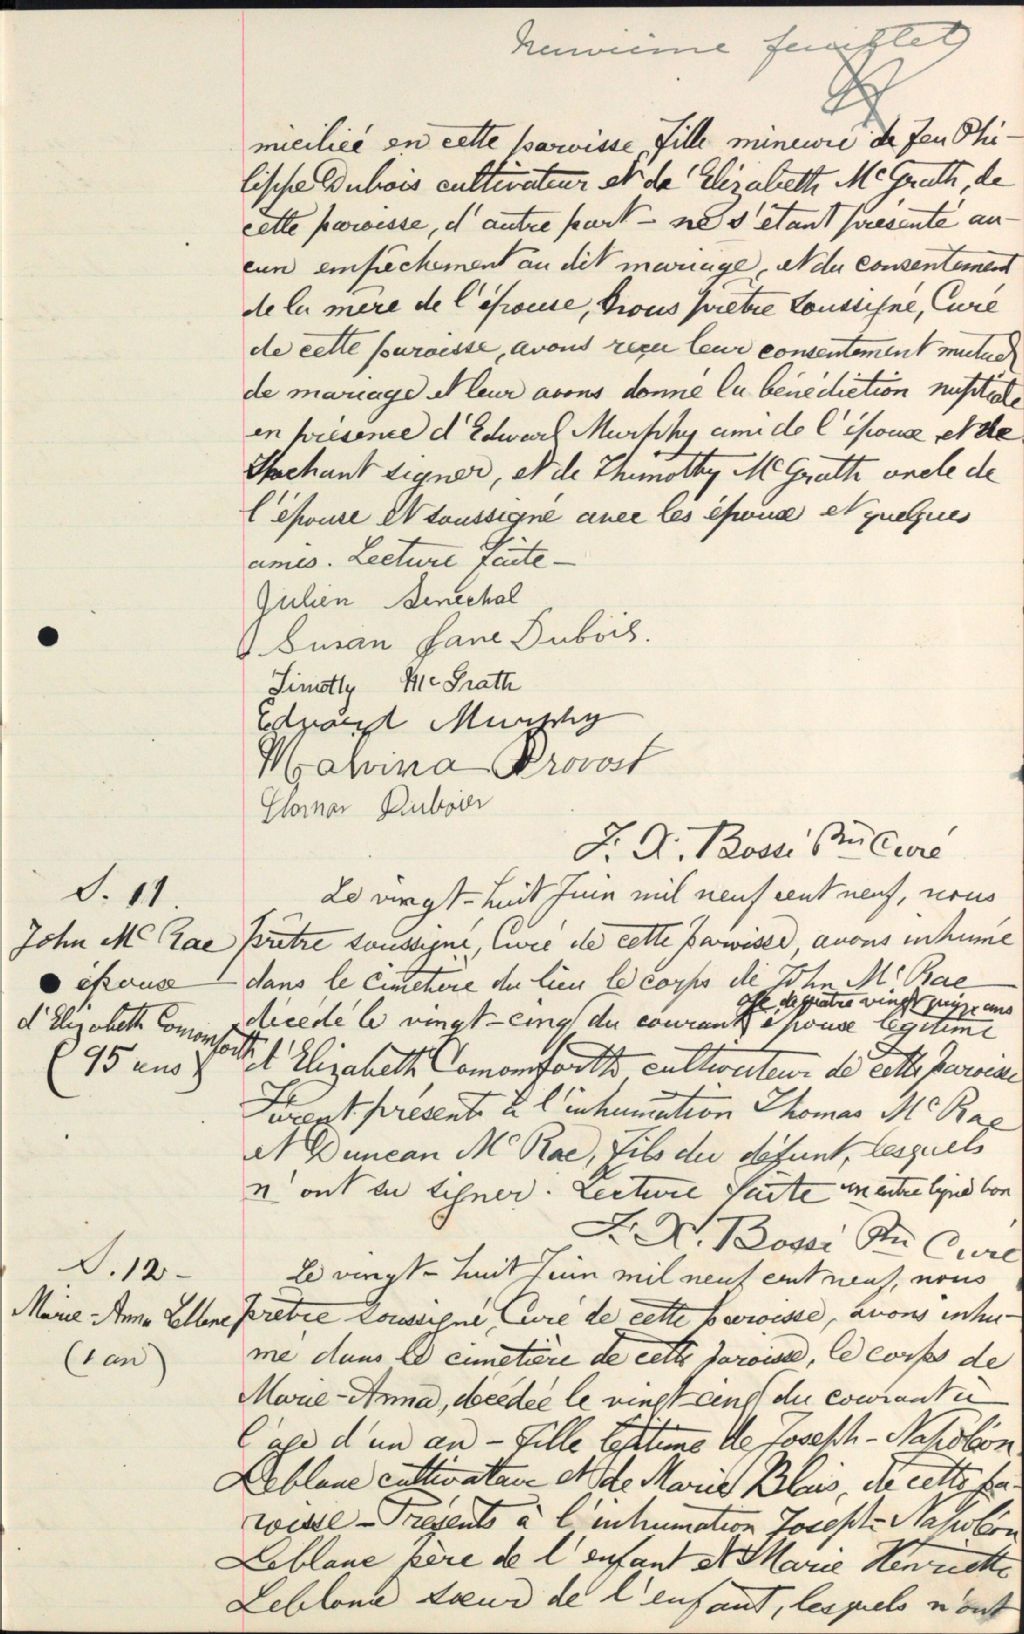 neuvième feuillet
miciliée en cette paroisse, fille mineure de feu Phi-
lippe Dubois cultivateur et de Elizabeth McGrath, de
cette paroisse, d'autre part - ne s'étant présenté au-
cun empêchement au dit mariage, et du consentement
de la mère de l'épouse, nous prêtre soussigné, Curé
de cette paroisse, avons reçu leur consentement mutuel
de mariage et leur avons donné la bénédiction nuptiale
en présence d'Edward Murphy ami de l'époux et de
sachant signer, et de Thimothy McGrath oncle de
l'épouse et soussigné avec les époux et quelques
amis. Lecture faite -
Julien Senechal
Susan Jane Dubois.
Timothy McGrath
Edward Murphy
Malvina Provost
Dubois
F. X. Bossé Ptre Curé
S. 11.
John McRae
épouse
d'Elizabeth Comomforth
(95 ans)
Le vingt-huit Juin mil neuf cent neuf, nous
prêtre soussigné, Curé de cette paroisse, avons inhumé
dans le cimetière du lieu le corps de John McRae
âgé de quatre vingt quinze ans
décédé le vingt-cinq du courant époux légitime
d'Elizabeth Comomforth cultivateur de cette paroisse
Furent présents à l'inhumation Thomas McRae
et Duncan McRae, fils du défunt, lesquels
n'ont su signer. Lecture faite un entre ligne bon
F. X. Bossé Ptre Curé
S. 12 -
Marie-Anna Leblanc
(1 an)
Le vingt-huit Juin mil neuf cent neuf, nous
prêtre soussigné, Curé de cette paroisse, avons inhu-
mé dans le cimetière de cette paroisse, le corps de
Marie-Anna, décédée le vingt-cinq du courant à
l'âge d'un an - fille légitime de Joseph-Napoléon
Leblanc cultivateur et de Marie Blais, de cette pa-
roisse - Présents à l'inhumation Joseph-Napoléon
Leblanc père de l'enfant et Marie Henriette
Leblanc sœur de l'enfant, lesquels n'ont